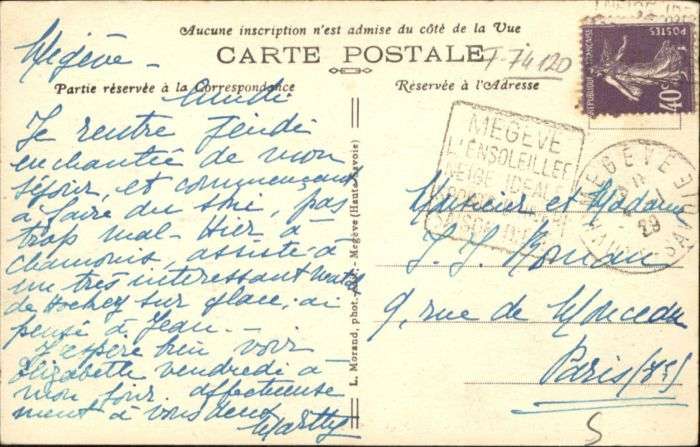 Aucune inscription n'est admise du côté de la Vue
CARTE POSTALE
7 74120
Partie réservée à la Correspondance
Réservée à l'Adresse
Megève
Je rentre Jeudi
enchantée de mon
séjour, et commençant
à faire du ski, pas
trop mal - Hier à
chamonix, assisté à
un très interessant match
de Hockey sur glace, ai
pensé à Jean. -
J'espère bien voir
Elizabeth vendredi à
mon jour. affectueuse
ment à vous deux
Marthy
L. Morand, phot. Megève (Haute-Savoie)
POSTES
REPUBLIQUE FRANÇAISE
40c
MEGÈVE
L'ENSOLEILLEE
NEIGE IDEALE
MEGÈVE
29
Monsieur et Madame
9, rue de Monceau
Paris (
5